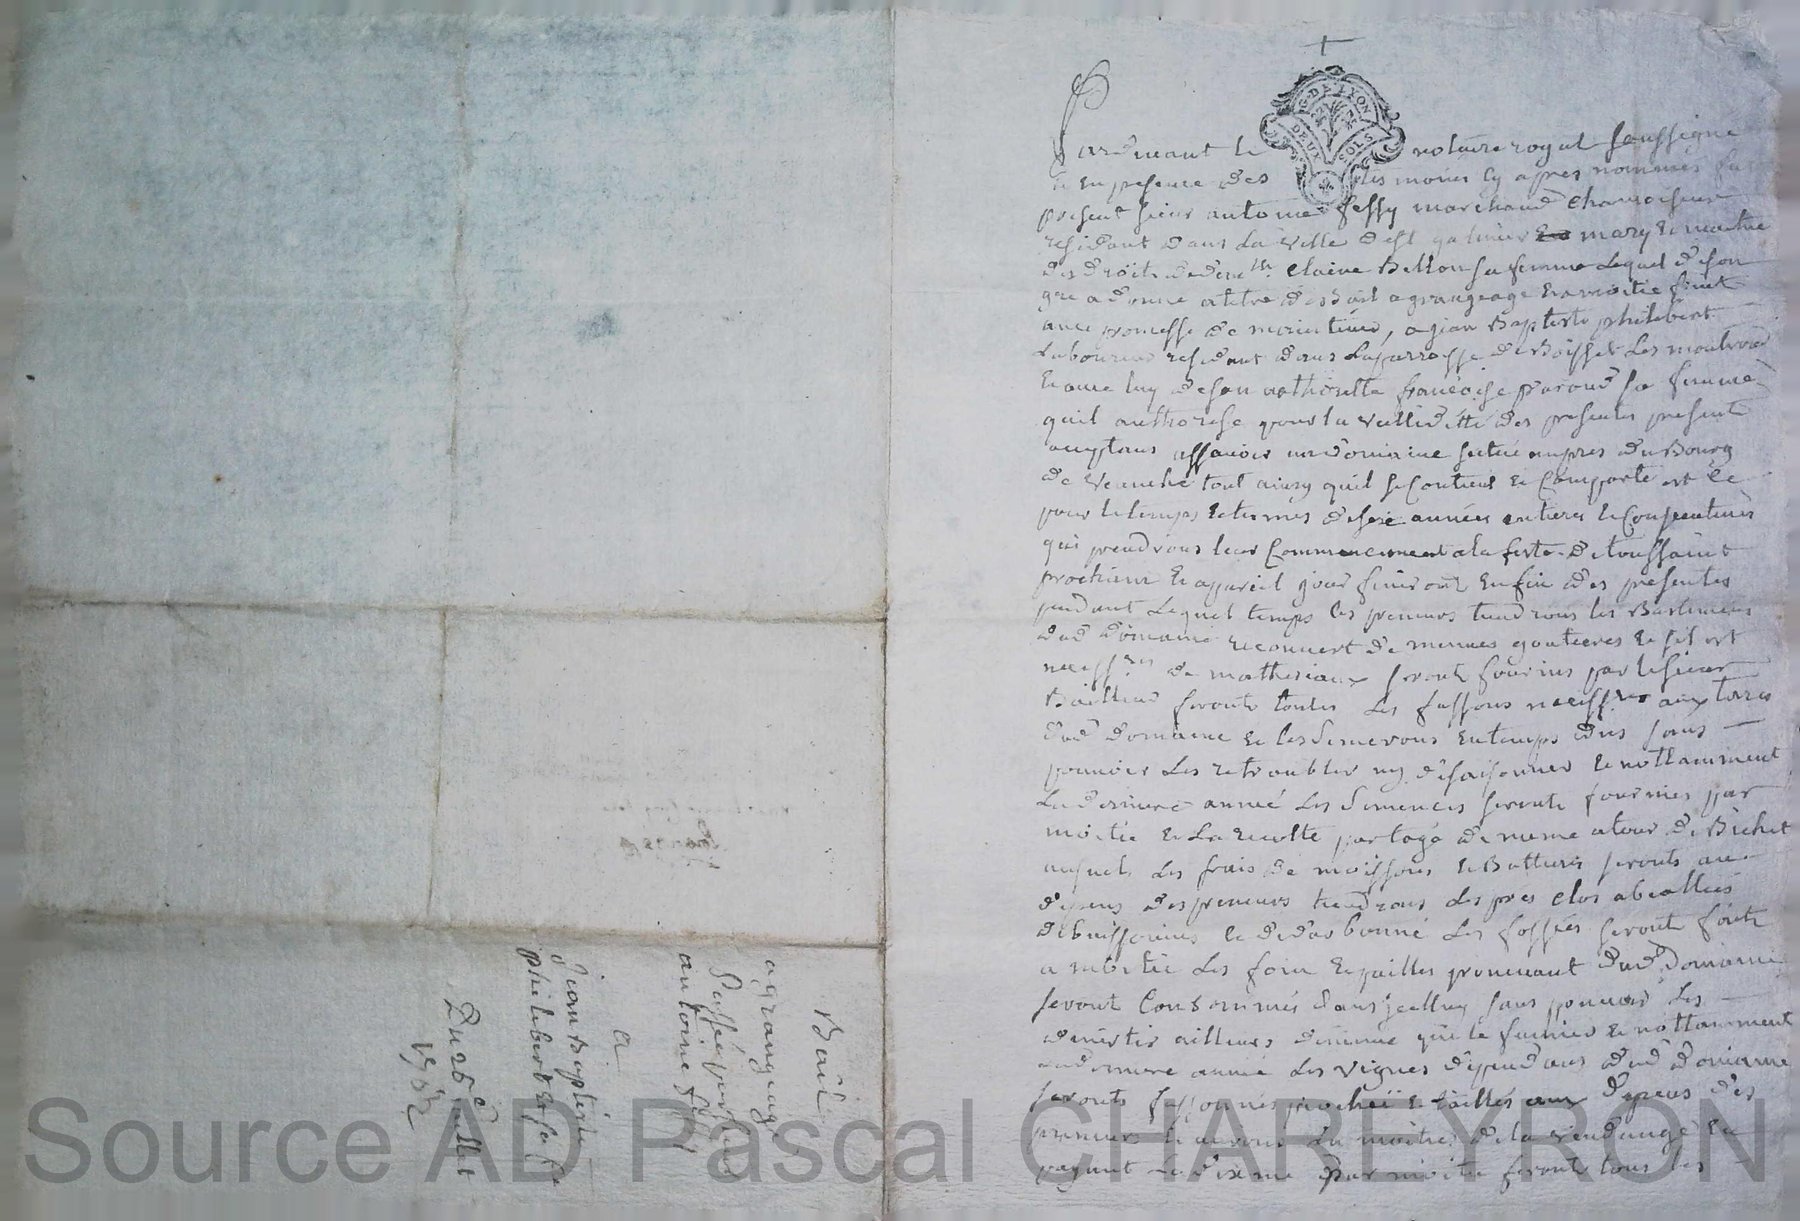 Bail
agrangeage
Passé par sieur
antoine fessy
a
Jean Baptiste
philibert & sa fe
Du 25e Juillet
GN DE LYON
DEUX SOLS
Pardevant le notaire royal soussigne
& en presence des tesmoins cy apres nommés fu
present sieur antoine fessy marchand chamoiseur
residant dans la ville dest galmier mary & maitre
des droits de dem.lle claire Bellon sa femme lequel de son
gre a donné a titre de bail a grangeage & a moitie fruit
avec promesse de maintenir, a jean Baptiste philibert
laboureur residant dans la parroisse de Boisset les montrond
& avec luy de son authoritte françoise parond sa femme
quil authorise pour la vallidité des presentes presents
acceptans assavoir un domaine scitué aupres du Bourg
de veauche tout ainsy quil se contient & comporte et ce
pour le temps & termes de années entieres & consecutives
qui prendrons leur commencement a la feste de toussaint
prochaine & a pareil jour finiront en fin des presentes
pendant lequel temps les preneurs tiendrons les Bastimens
dud domaine recouvert de menues goutieres & sil est
necess.res de matheriaux seront fournis par le sieur
Bailleur feronts toutes les fassons necess.res aux terres
dud domaine & les semerons en temps dus sans
pouvoir les retroubler ny desaisonner & nottamment
la derniere année les semences seronts fournies par
moitié & la recolte partagé de meme atour de Bichet
auquels les frais de moissons & Batteures seronts aux
depens des preneurs tiendrons les pres clos abeallés
debuissonnés & de darbonné les fossées seront faits
a moitié les foin & pailles provenant dud domaine
seront consommés dans jcelluy sans pouvoir les
divertir ailleurs de meme que le fumier & nottamment
la derniere année les vignes dependans dud domaine
seronts fassonnés & taillés aux depens des
preneurs & aurons la moitié de la vendange en
payant la dixme par moitié feront tous les
Source AD Pascal CHARLYRON